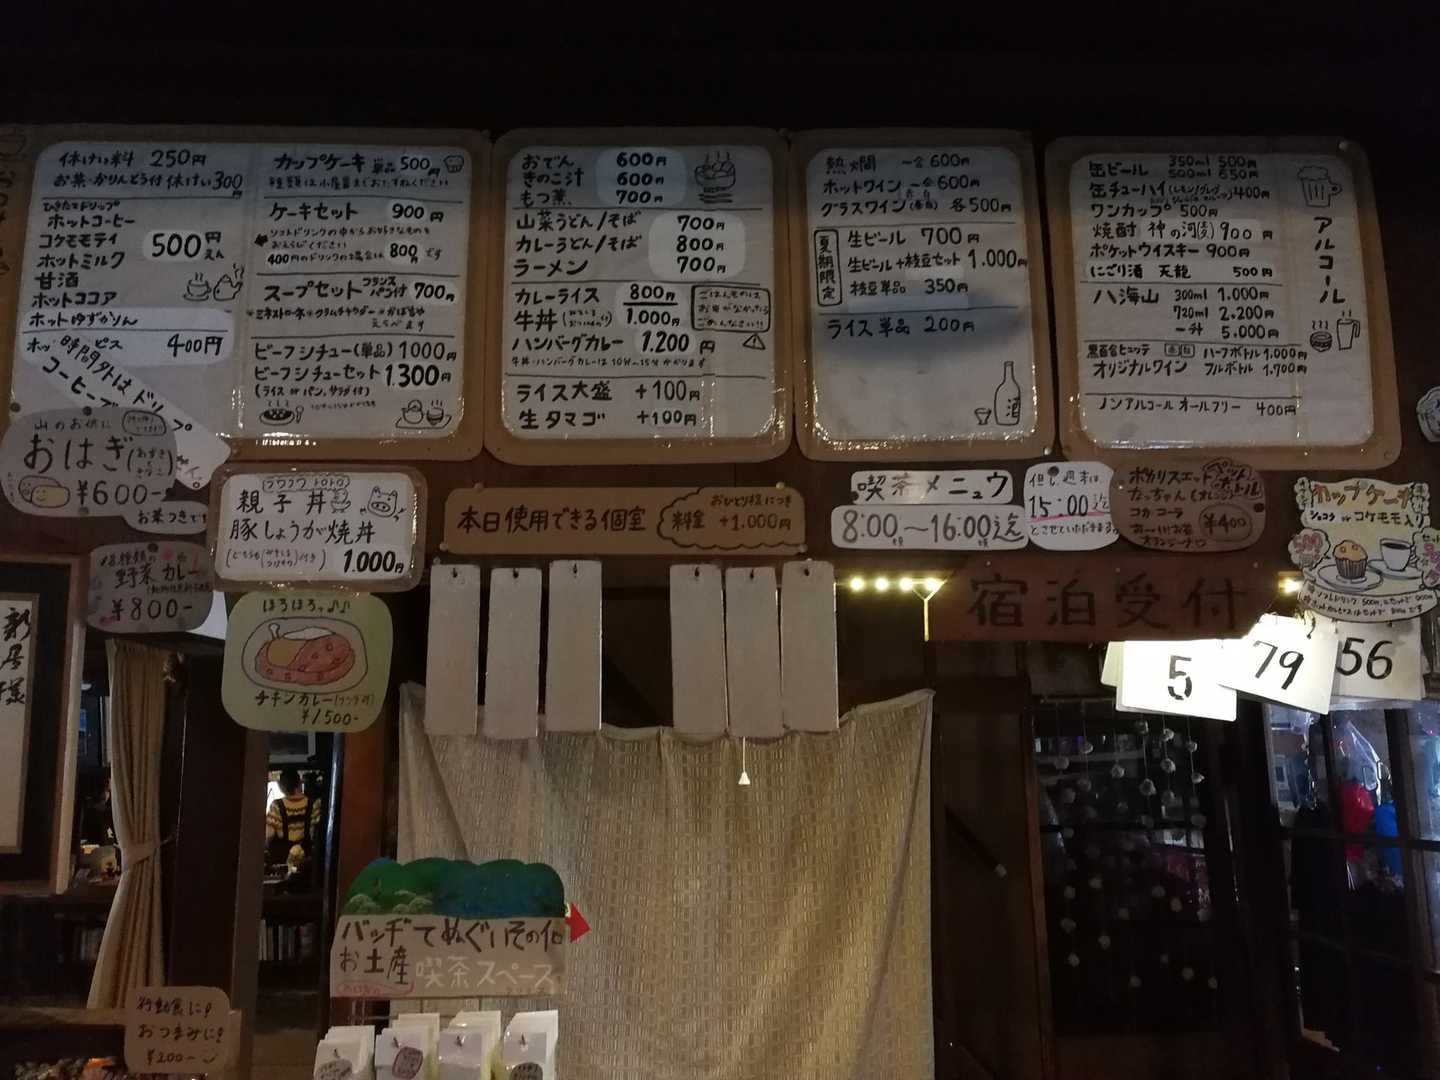 休けい料 250円
お茶・かりんとう付 休けい300円
ひきたてドリップ
ホットコーヒー
コケモモティ
ホットミルク
甘酒
ホットココア
500円
ホットゆずかりん
400円
時間外は ドリップ
コーヒー
カップケーキ 単品 500円
ケーキセット 900円
ソフトドリンクの中からお好きなものを
おえらびください
400円のドリンクの場合は 800円です
スープセット フランスパン付 700円
ミネストローネ クラムチャウダー かぼちゃ
えらべます
ビーフシチュー(単品) 1000円
ビーフシチューセット 1.300円
(ライス or パン、サラダ付)
おでん 600円
きのこ汁 600円
もつ煮、 700円
山菜うどん/そば 700円
カレーうどん/そば 800円
ラーメン 700円
カレーライス 800円
牛丼 1.000円
ハンバーグカレー 1.200円
ごはんものは
お米がなかったら
ごめんなさい!!
牛丼・ハンバーグカレーは 10分〜15分かかります
ライス大盛 +100円
生タマゴ +100円
熱燗 一合 600円
ホットワイン 一合 600円
グラスワイン(赤・白) 各500円
夏期限定
生ビール 700円
生ビール+枝豆セット 1.000円
枝豆単品 350円
ライス単品 200円
酒
アルコール
缶ビール 350ml 500円
500ml 650円
缶チューハイ 400円
ワンカップ 500円
焼酎 神の河 900円
ポケットウイスキー 900円
にごり酒 天龍 500円
八海山 300ml 1.000円
720ml 2.200円
一升 5.000円
黒百合ヒュッテ 赤 白 ハーフボトル 1.000円
オリジナルワイン フルボトル 1.700円
ノンアルコール オールフリー 400円
山のお供に
おはぎ
¥600-
お茶つきです
親子丼
豚しょうが焼丼
1.000円
本日使用できる個室
おひとり様につき
料金 +1.000円
喫茶メニュウ
8:00〜16:00迄
但し週末は、
15:00迄
とさせていただきます。
ポカリスエット ペットボトル
なっちゃん(オレンジ)
コカ・コーラ
おーいお茶
¥400
カップケーキ
ショコラ or コケモモ入り
野菜カレー
¥800-
ほろほろッ♪♪
チキンカレー
¥1500-
宿泊受付
5
79
56
新居様
バッヂ てぬぐい その他
お土産 喫茶スペース
行動食に!
おつまみに!
¥200-